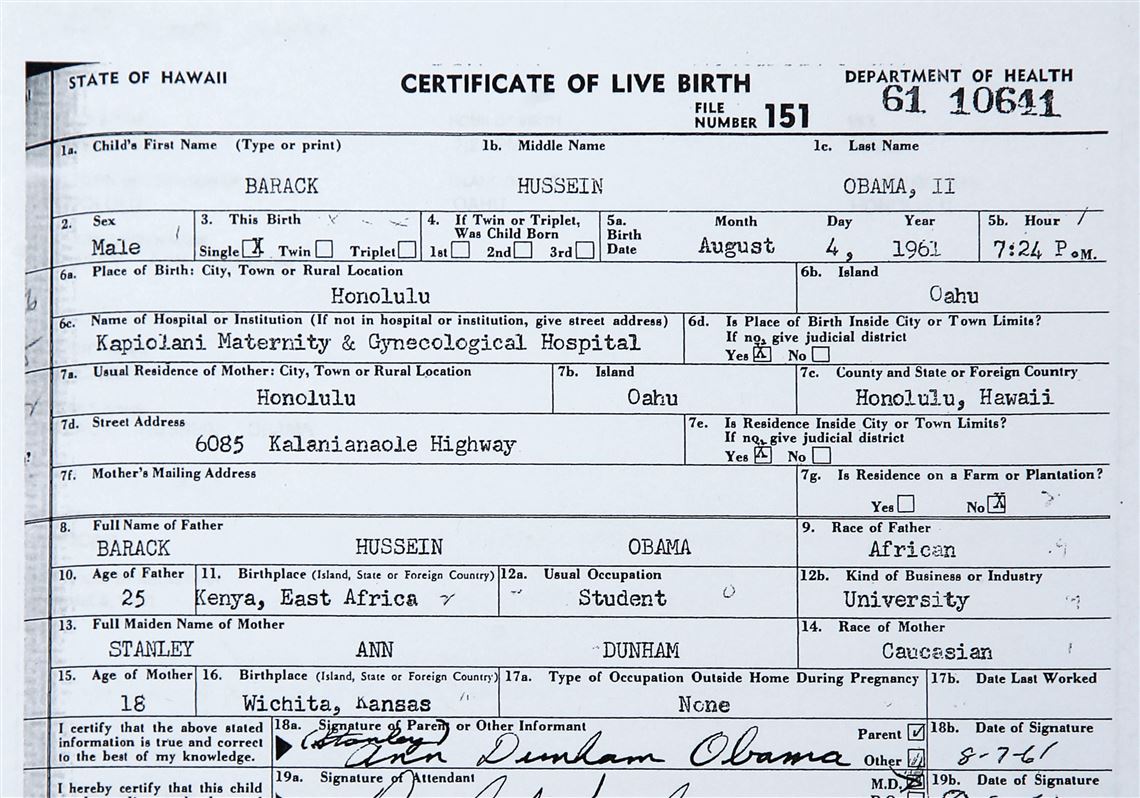 STATE OF HAWAII CERTIFICATE OF LIVE BIRTH DEPARTMENT OF HEALTH
FILE NUMBER 151 61 10641
1a. Child's First Name (Type or print) 1b. Middle Name 1c. Last Name
BARACK HUSSEIN OBAMA, II
2. Sex 3. This Birth 4. If Twin or Triplet, Was Child Born 5a. Birth Date Month Day Year 5b. Hour
Male Single X Twin Triplet 1st 2nd 3rd August 4, 1961 7:24 P.M.
6a. Place of Birth: City, Town or Rural Location 6b. Island
Honolulu Oahu
6c. Name of Hospital or Institution (If not in hospital or institution, give street address) 6d. Is Place of Birth Inside City or Town Limits?
If no, give judicial district
Kapiolani Maternity & Gynecological Hospital Yes X No
7a. Usual Residence of Mother: City, Town or Rural Location 7b. Island 7c. County and State or Foreign Country
Honolulu Oahu Honolulu, Hawaii
7d. Street Address 7e. Is Residence Inside City or Town Limits?
If no, give judicial district
6085 Kalanianaole Highway Yes X No
7f. Mother's Mailing Address 7g. Is Residence on a Farm or Plantation?
Yes No X
8. Full Name of Father 9. Race of Father
BARACK HUSSEIN OBAMA African
10. Age of Father 11. Birthplace (Island, State or Foreign Country) 12a. Usual Occupation 12b. Kind of Business or Industry
25 Kenya, East Africa Student University
13. Full Maiden Name of Mother 14. Race of Mother
STANLEY ANN DUNHAM Caucasian
15. Age of Mother 16. Birthplace (Island, State or Foreign Country) 17a. Type of Occupation Outside Home During Pregnancy 17b. Date Last Worked
18 Wichita, Kansas None
I certify that the above stated information is true and correct to the best of my knowledge.
18a. Signature of Parent or Other Informant Parent Other 18b. Date of Signature
(Stanley) Ann Dunham Obama 8-7-61
I hereby certify that this child
19a. Signature of Attendant M.D. 19b. Date of Signature